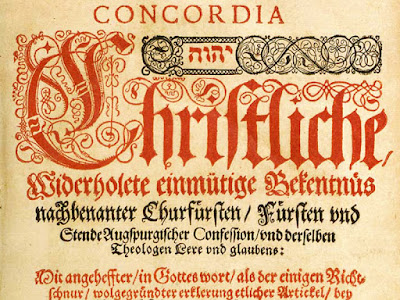 CONCORDIA
יהוה
Christliche,
Widerholete einmütige Bekentnüs
nachbenanter Churfürsten / Fürsten vnd
Stende Augspurgischer Confession / vnd derselben
Theologen Lere vnd glaubens:
Mit angeheffter / in Gottes wort / als der einigen Richt-
schnur / wolgegründter erklerung etlicher Artickel / bey